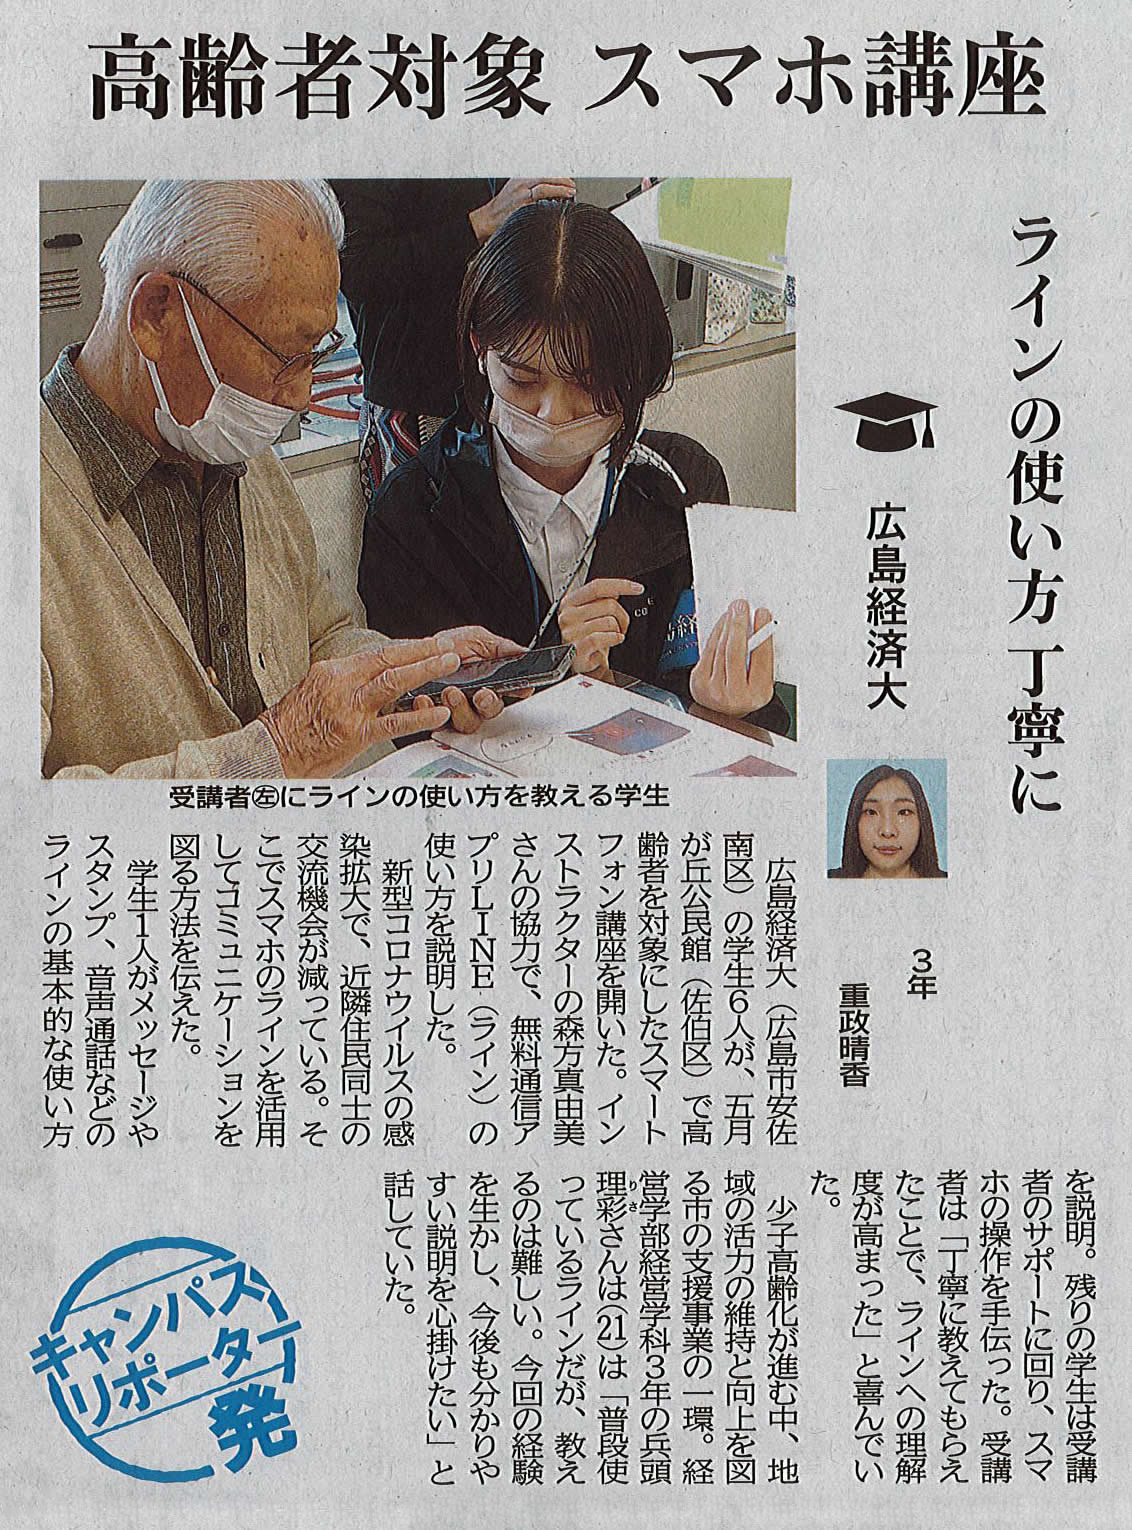 高齢者対象 スマホ講座
ラインの使い方 丁寧に
広島経済大
3年
重政晴香
受講者㊧にラインの使い方を教える学生
広島経済大（広島市安佐
南区）の学生６人が、五月
が丘公民館（佐伯区）で高
齢者を対象にしたスマート
フォン講座を開いた。イン
ストラクターの森方真由美
さんの協力で、無料通信ア
プリＬＩＮＥ（ライン）の
使い方を説明した。
新型コロナウイルスの感
染拡大で、近隣住民同士の
交流機会が減っている。そ
こでスマホのラインを活用
してコミュニケーションを
図る方法を伝えた。
学生１人がメッセージや
スタンプ、音声通話などの
ラインの基本的な使い方
を説明。残りの学生は受講
者のサポートに回り、スマ
ホの操作を手伝った。受講
者は「丁寧に教えてもらえ
たことで、ラインへの理解
度が高まった」と喜んでい
た。
少子高齢化が進む中、地
域の活力の維持と向上を図
る市の支援事業の一環。経
営学部経営学科３年の兵頭
理彩さんは(21)は「普段使
っているラインだが、教え
るのは難しい。今回の経験
を生かし、今後も分かりや
すい説明を心掛けたい」と
話していた。
キャンパス
リポーター
発